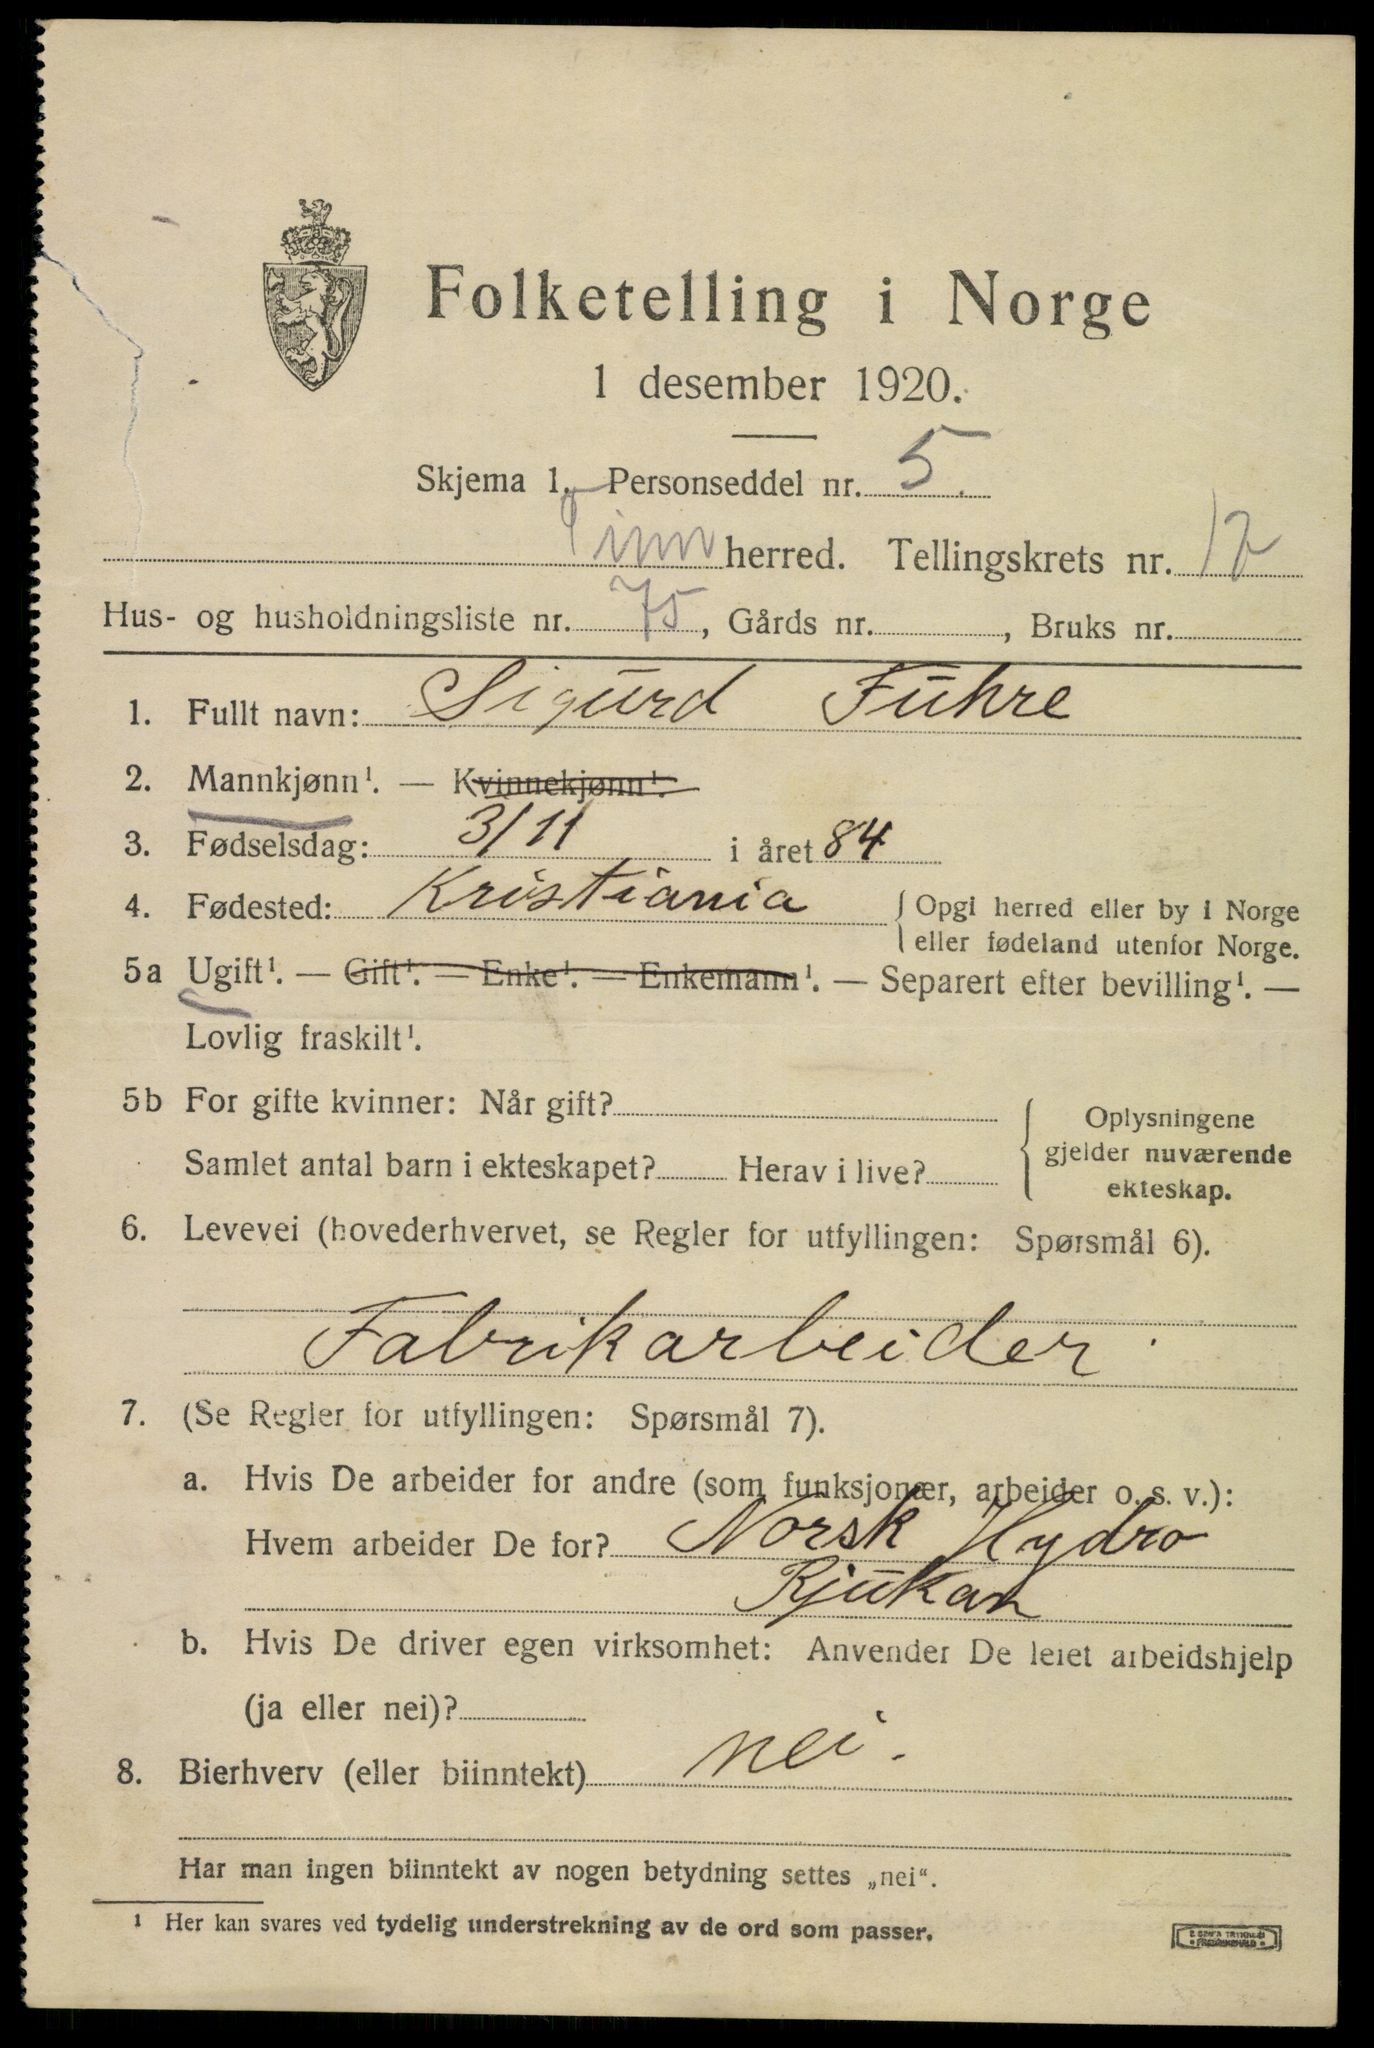 Folketelling i Norge
1 desember 1920.
Skjema 1. Personseddel nr. 5.
Tinn herred. Tellingskrets nr. 12
Hus- og husholdningsliste nr. 75, Gårds nr. , Bruks nr.
1. Fullt navn: Sigurd Fuhre
2. Mannkjønn¹. — Kvinnekjønn¹.
3. Fødselsdag: 3/11 i året 84
4. Fødested: Kristiania { Opgi herred eller by i Norge
eller fødeland utenfor Norge.
5a Ugift¹. — Gift¹. — Enke¹. — Enkemann¹. — Separert efter bevilling¹. —
Lovlig fraskilt¹.
5b For gifte kvinner: Når gift?
Samlet antal barn i ekteskapet? Herav i live?
Oplysningene
gjelder nuværende
ekteskap.
6. Levevei (hovederhvervet, se Regler for utfyllingen: Spørsmål 6).
Fabrikarbeider.
7. (Se Regler for utfyllingen: Spørsmål 7).
a. Hvis De arbeider for andre (som funksjonær, arbeider o. s. v.):
Hvem arbeider De for? Norsk Hydro
Rjukan
b. Hvis De driver egen virksomhet: Anvender De leiet arbeidshjelp
(ja eller nei)?
8. Bierhverv (eller biinntekt) nei.
Har man ingen biinntekt av nogen betydning settes „nei“.
¹ Her kan svares ved tydelig understrekning av de ord som passer.